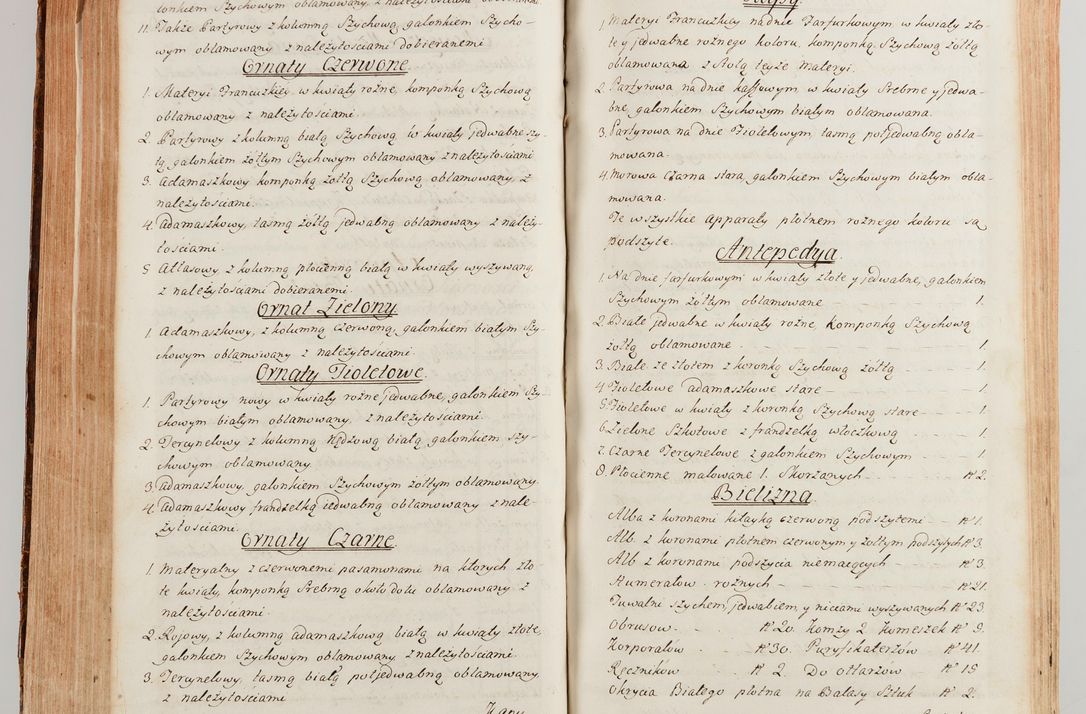 tonkiem Szychowym oblamowany, z należytościami dobieranemi
11. Także Partyrowy z kolumną Szychową, galonkiem Szycho-
wym oblamowany z należytościami dobieranemi
Ornaty Czerwone.
1. Materyi Francuzkiey w kwiaty rożne, komponką Szychową
oblamowany z należytościami.
2. Partyrowy z kolumną białą Szychową, w kwiaty jedwabne szy-
tą, galonkiem żółtym Szychowym oblamowany z należytościami
3. Adamaszkowy komponką żółtą Szychową oblamowany z
należytościami.
4. Adamaszkowy, tasmą żółtą jedwabną oblamowany z należy-
tościami.
5 Atlasowy z kolumną płocienną białą w kwiaty wyszywaną,
z należytościami dobieranemi.
Ornat Zielony
1. Adamaszkowy, z kolumną czerwoną, galonkiem białym Szy-
chowym oblamowany z należytościami.
Ornaty Fioletowe.
1. Partyrowy nowy w kwiaty rożne jedwabne, galonkiem Szy-
chowym białym oblamowany, z należytościami.
2. Tercynelowy z kolumną Rędzową białą, galonkiem szy-
chowym oblamowany.
3. Adamaszkowy, galonkiem Szychowym żółtym oblamowany.
4. Adamaszkowy frandzelką jedwabną oblamowany z nale-
żytościami.
Ornaty Czarne.
1. Materyalny z czerwonemi pasamonami na ktorych zło
te kwiaty, komponką srebrną około dołu oblamowany z
należytościami.
2. Rojowy, z kolumną adamaszkową białą w kwiaty złote,
galonkiem Szychowym oblamowany, z należytościami.
3. Tercynelowy, tasmą białą połjedwabną oblamowany,
z należytościami.
Kapy
Kapy.
1. Materyi Francuzkiey na dnie Farfurkowym w kwiaty zło-
te y jedwabne rożnego koloru, komponką Szychową żółtą
oblamowana z Stołą teyże Materyi.
2. Partyrowa na dnie kaffowym w kwiaty Srebrne y jedwa-
bne, galonkiem Szychowym białym oblamowana.
3. Partyrowa na dnie Fioletowym, tasmą połjedwabną obla-
mowana.
4. Morowa Czarna stara, galonkiem Szychowym białym obla-
mowana.
Te wszystkie Apparaty płotnem rożnego koloru są
Podszyte.
Antepedya.
1. Na dnie farfurkowym w kwiaty złote y jedwabne, galonkiem
Szychowym żółtym oblamowane 1.
2. Białe jedwabne w kwiaty rożne, Komponką Szychową
żółtą oblamowane. 1.
3. Białe ze złotem z koronką Szychową żółtą 1.
4 Fioletowe adamaszkowe stare 1.
5. Fioletowe w kwiaty z koronką Szychową stare 1.
6. Zielone Szkotowe z frandzelką włoczkową 1.
7. Czarne Tercynelowe z galonkiem Szychowym 1.
8. Płocienne malowane 1. Skorzanych N° 2.
Bielizna.
Alba z koronami kitayką czerwoną podszytemi N° 1.
Alb. z koronami płotnem czerwonym y żółtym podszytych N° 3.
Alb z koronami podszycia niemaiących N° 3.
Humerałow rożnych N° 21.
Tuwalni szychem, jedwabiem, y niciami wyszywanych N° 23.
Obrusow. N° 20. Komży 2. Komeszek N° 9.
Korporałow N° 30. Puryfikaterzów N° 41.
Ręczników N° 2. Do ołtarzów N° 15
Okrycia Białego płotna na Balasy Sztuk N° 2.